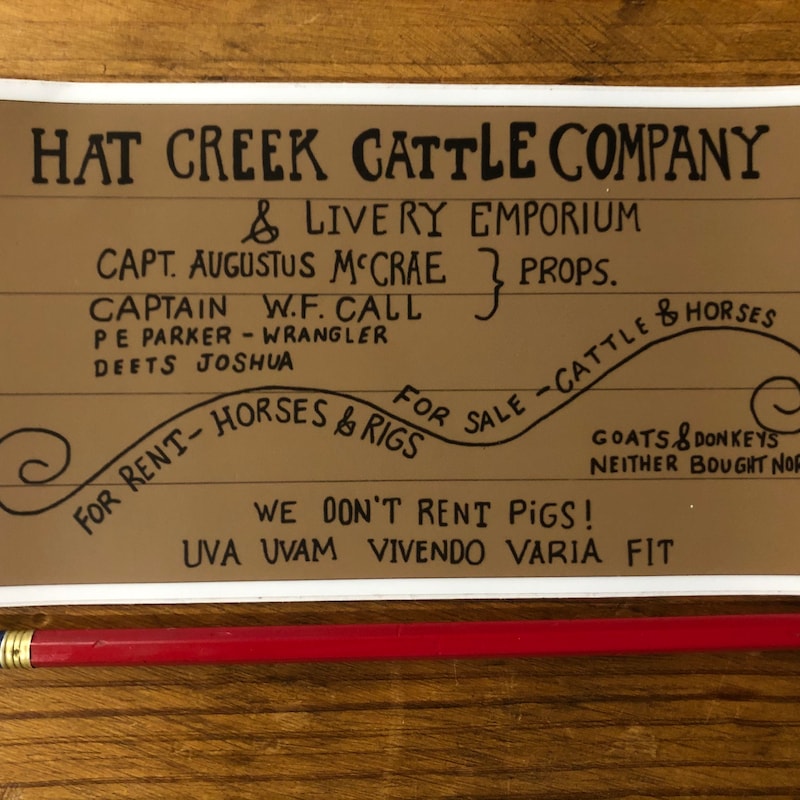 HAT CREEK CATTLE COMPANY
& LIVERY EMPORIUM
CAPT. AUGUSTUS McCRAE } PROPS.
CAPTAIN W.F. CALL
P E PARKER - WRANGLER
DEETS JOSHUA
FOR RENT - HORSES & RIGS
FOR SALE - CATTLE & HORSES
GOATS & DONKEYS
NEITHER BOUGHT NOR
WE DON'T RENT PiGS!
UVA UVAM VIVENDO VARIA FIT